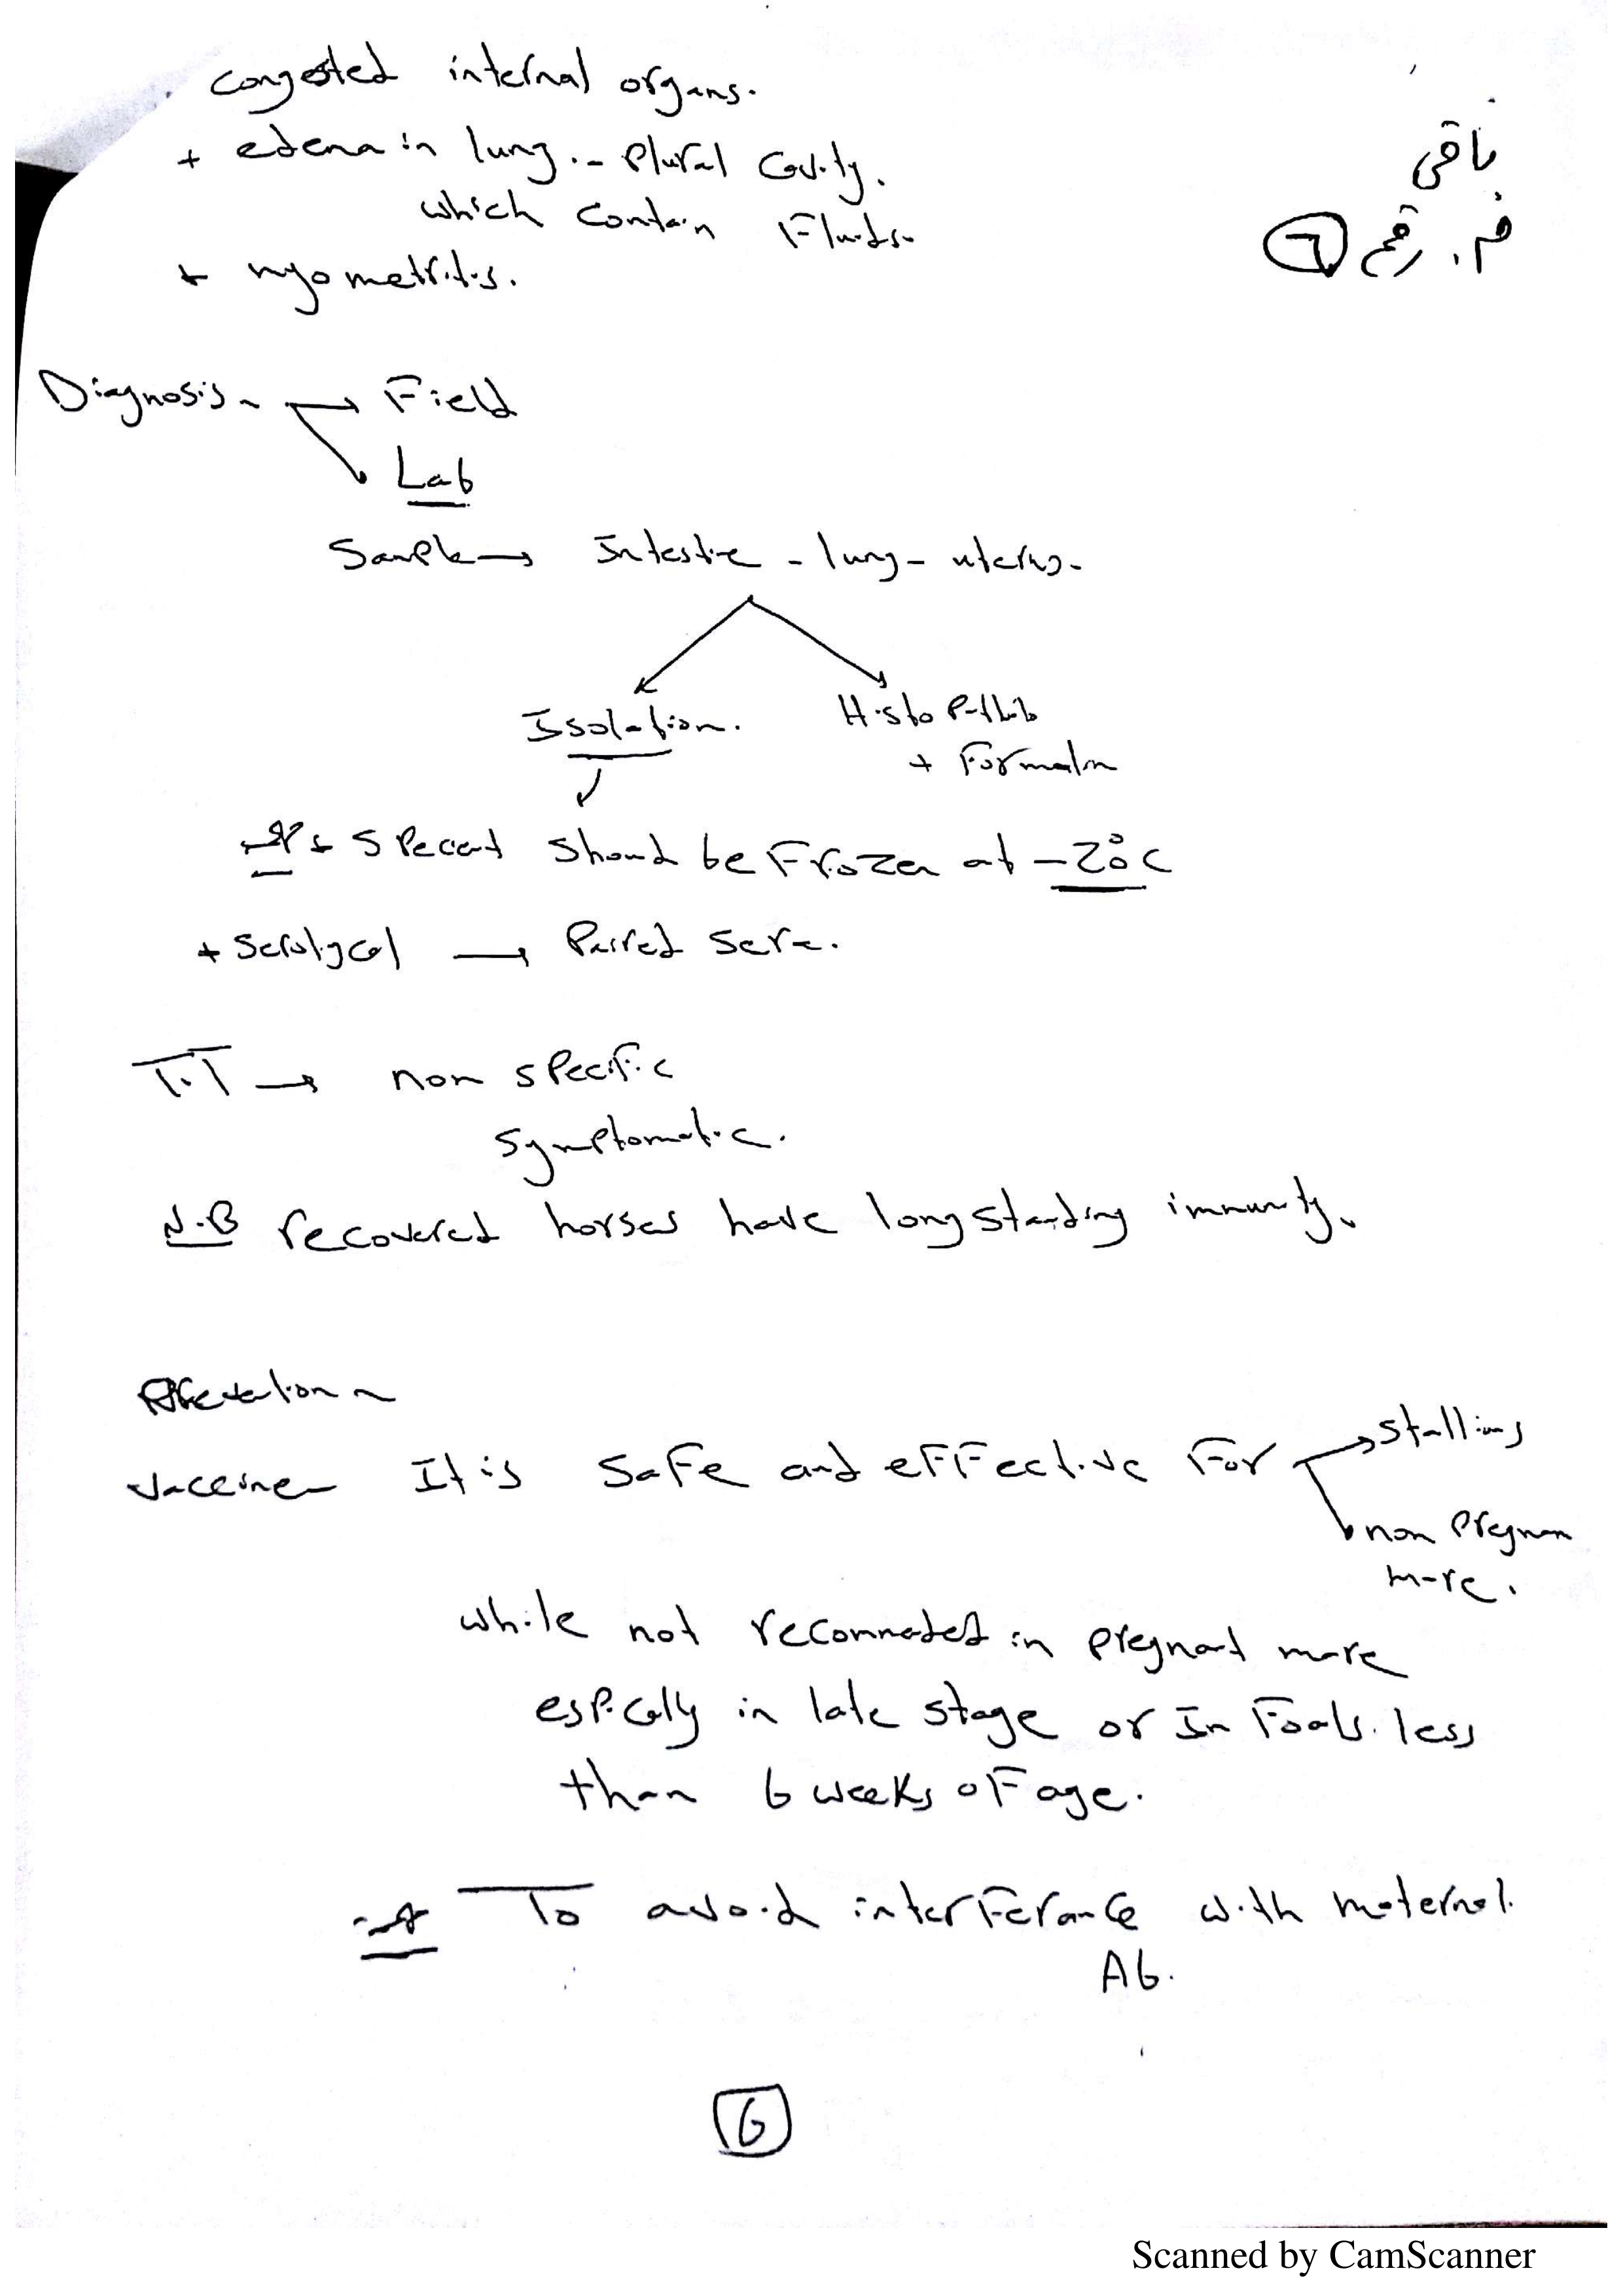 congested internal organs.
+ edema in lung .- Plural Cavity.
which contain Fluids.
+ myometritis.
باقى
م. رقم ٦
Diagnosis → Field
→ Lab
Sample → Intestine - lung - uterus.
Isolation.
Histopath
+ Formalin
should be Frozen at -20°C
+ Serological → Paired sera.
T.T → non specific
symptomatic.
N.B recovered horses have long standing immunity.
Vaccine It is Safe and effective For → Stallions
→ non Pregnan
mare.
while not recommeded in pregnant mare
espically in late stage or In Foals less
than 6 weeks of age.
To avoid interferance with maternal
Ab.
6
Scanned by CamScanner